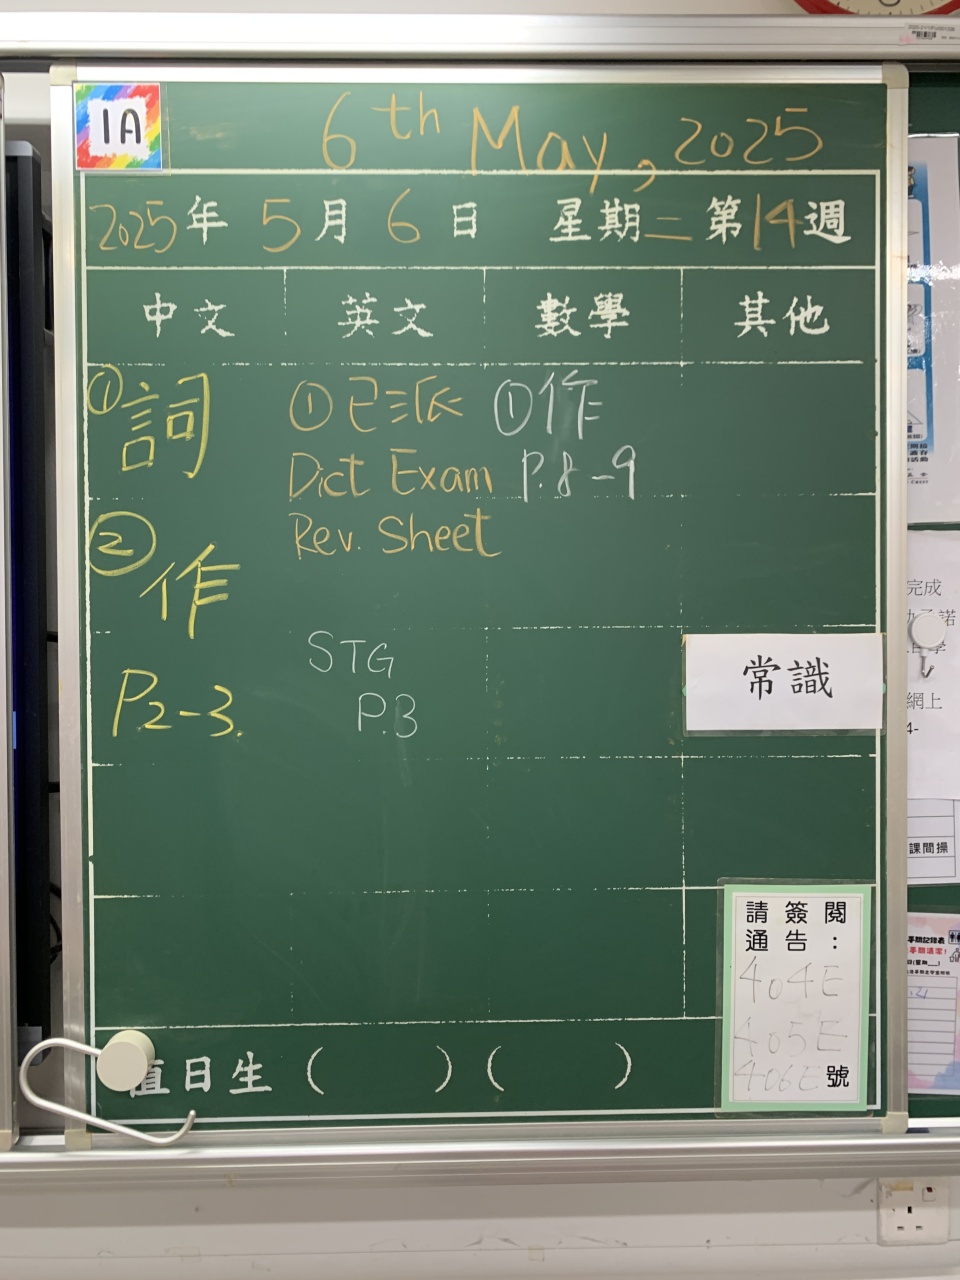 1A
6th May, 2025
2025年 5月 6日 星期二 第14週
中文 英文 數學 其他
①詞
②作
P2-3.
①已派
Dict Exam
Rev. Sheet
STG
P.3
①作
P.8-9
常識
請簽閱
通告：
404E
405E
406E號
值日生 ( ) ( )
完成
網上
4-
課間操